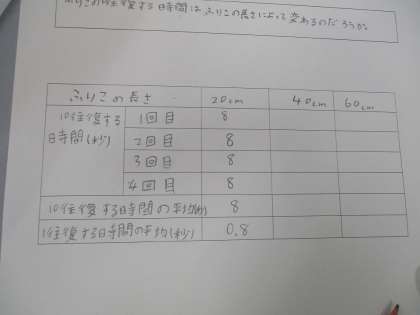 ふりこの往復する時間はふりこの長さによって変わるのだろうか。
ふりこの長さ 20cm 40cm 60cm
10往復する時間(秒) 1回目 8
2回目 8
3回目 8
4回目 8
10往復する時間の平均(秒) 8
1往復する時間の平均(秒) 0.8